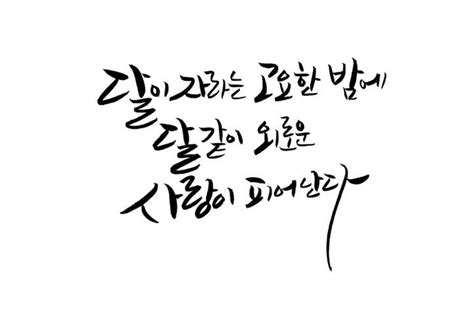 달이 자라는 고요한 밤에
달같이 외로운
사랑이 피어난다